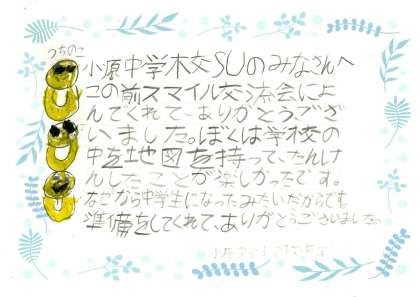 つちのこ
小原中学校SUのみなさんへ
この前スマイル交流会によ
んでくれて、ありがとうござ
いました。ぼくは学校の
中を地図を持って、たんけ
んしたことが楽しかったです。
なぜなら中学生になったみたいだからです。
準備をしてくれて、ありがとうございました。